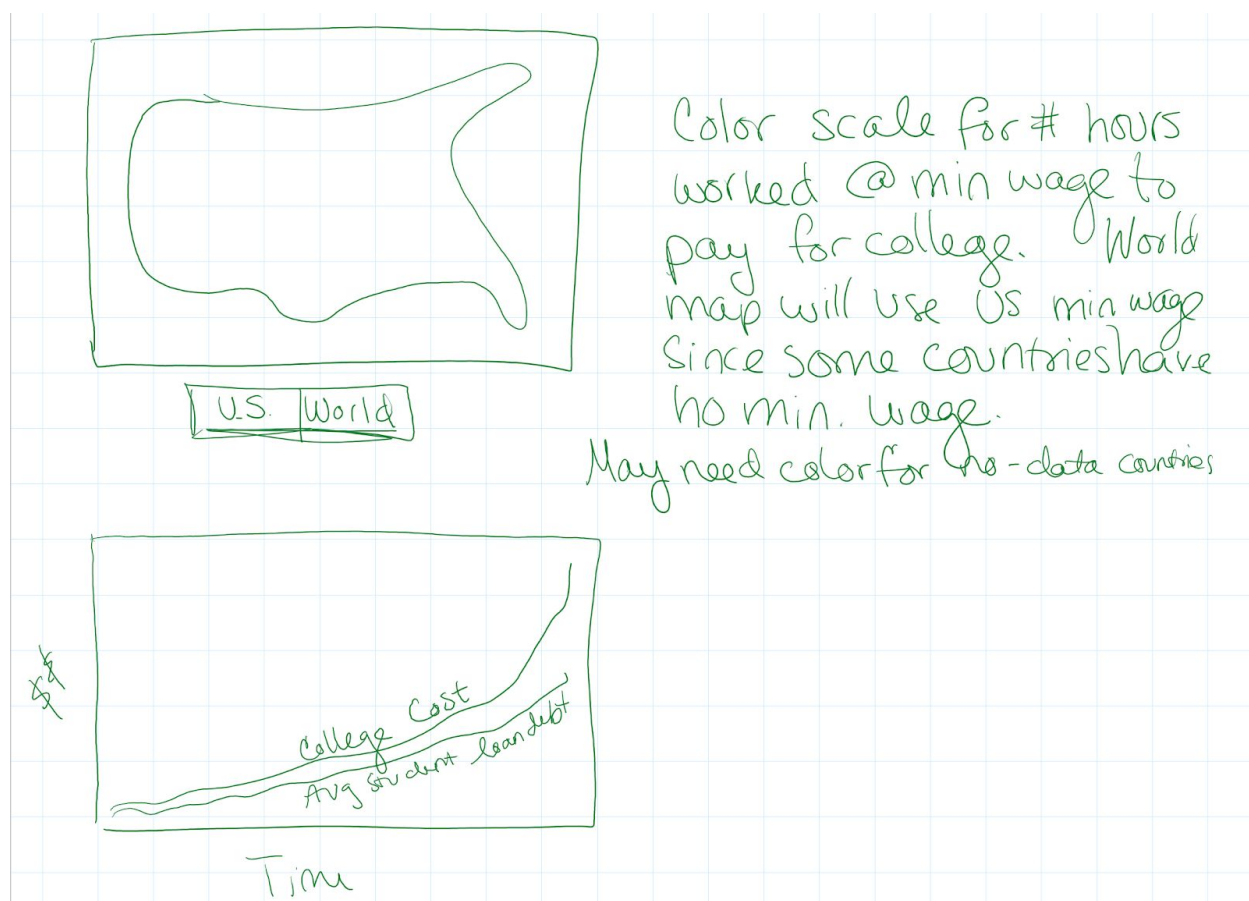 Color scale for # hours
worked @ min wage to
pay for college. World
map will use US min wage
since some countries have
no min. wage.
May need color for no-data countries
U.S. World
$$
College Cost
Avg student loan debt
Time